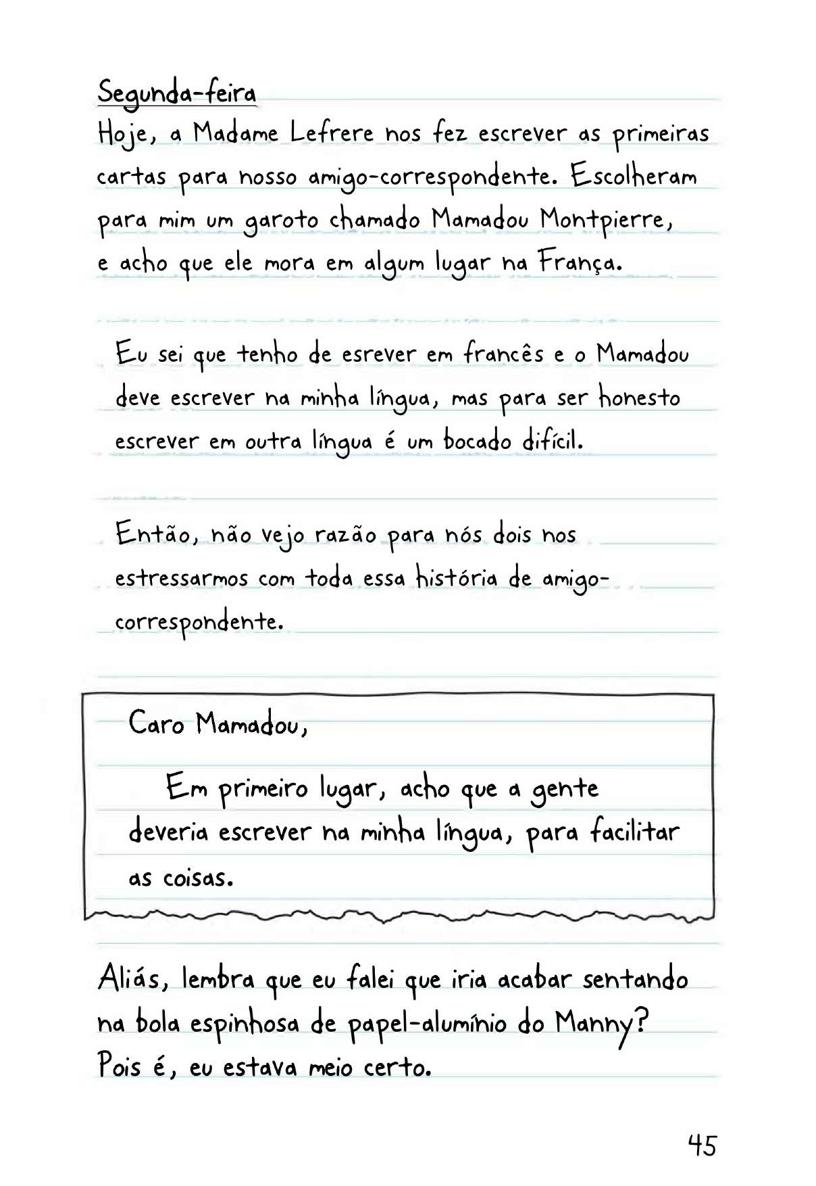 Segunda-feira
Hoje, a Madame Lefrere nos fez escrever as primeiras
cartas para nosso amigo-correspondente. Escolheram
para mim um garoto chamado Mamadou Montpierre,
e acho que ele mora em algum lugar na França.
Eu sei que tenho de esrever em francês e o Mamadou
deve escrever na minha língua, mas para ser honesto
escrever em outra língua é um bocado difícil.
Então, não vejo razão para nós dois nos
estressarmos com toda essa história de amigo-
correspondente.
Caro Mamadou,
Em primeiro lugar, acho que a gente
deveria escrever na minha língua, para facilitar
as coisas.
Aliás, lembra que eu falei que iria acabar sentando
na bola espinhosa de papel-alumínio do Manny?
Pois é, eu estava meio certo.
45